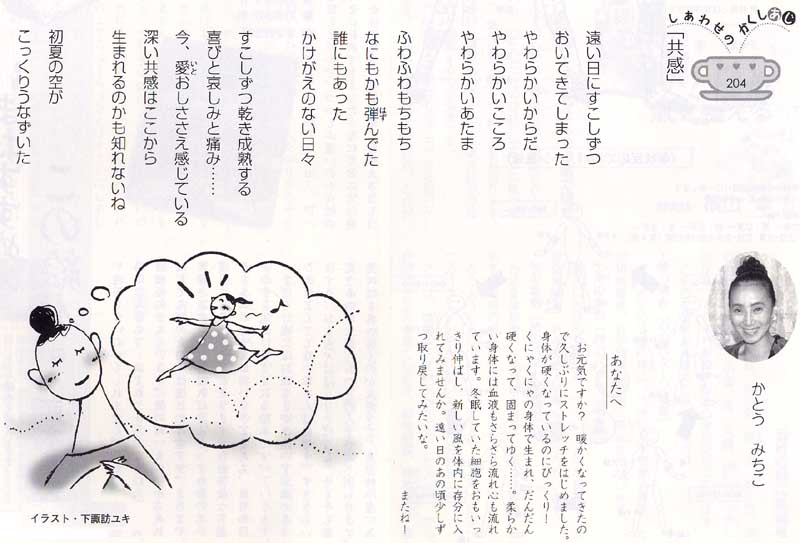 しあわせのかくしあじ
204
「共感」
遠い日にすこしずつ
おいてきてしまった
やわらかいからだ
やわらかいこころ
やわらかいあたま
ふわふわもちもち
なにもかも弾んでた
誰にもあった
かけがえのない日々
すこしずつ乾き成熟する
喜びと哀しみと痛み……
今、愛おしささえ感じている
深い共感はここから
生まれるのかも知れないね
初夏の空が
こっくりうなずいた
かとう みちこ
あなたへ
お元気ですか? 暖かくなってきたの
で久しぶりにストレッチをはじめました。
身体が硬くなっているのにびっくり!
くにゃくにゃの身体で生まれ、だんだん
硬くなって、固まってゆく……。柔らか
い身体には血液もさらさら流れ心も流れ
ています。冬眠していた細胞をおもいっ
きり伸ばし、新しい風を体内に存分に入
れてみませんか。遠い日のあの頃少しず
つ取り戻してみたいな。
またねー
イラスト・下諏訪ユキ